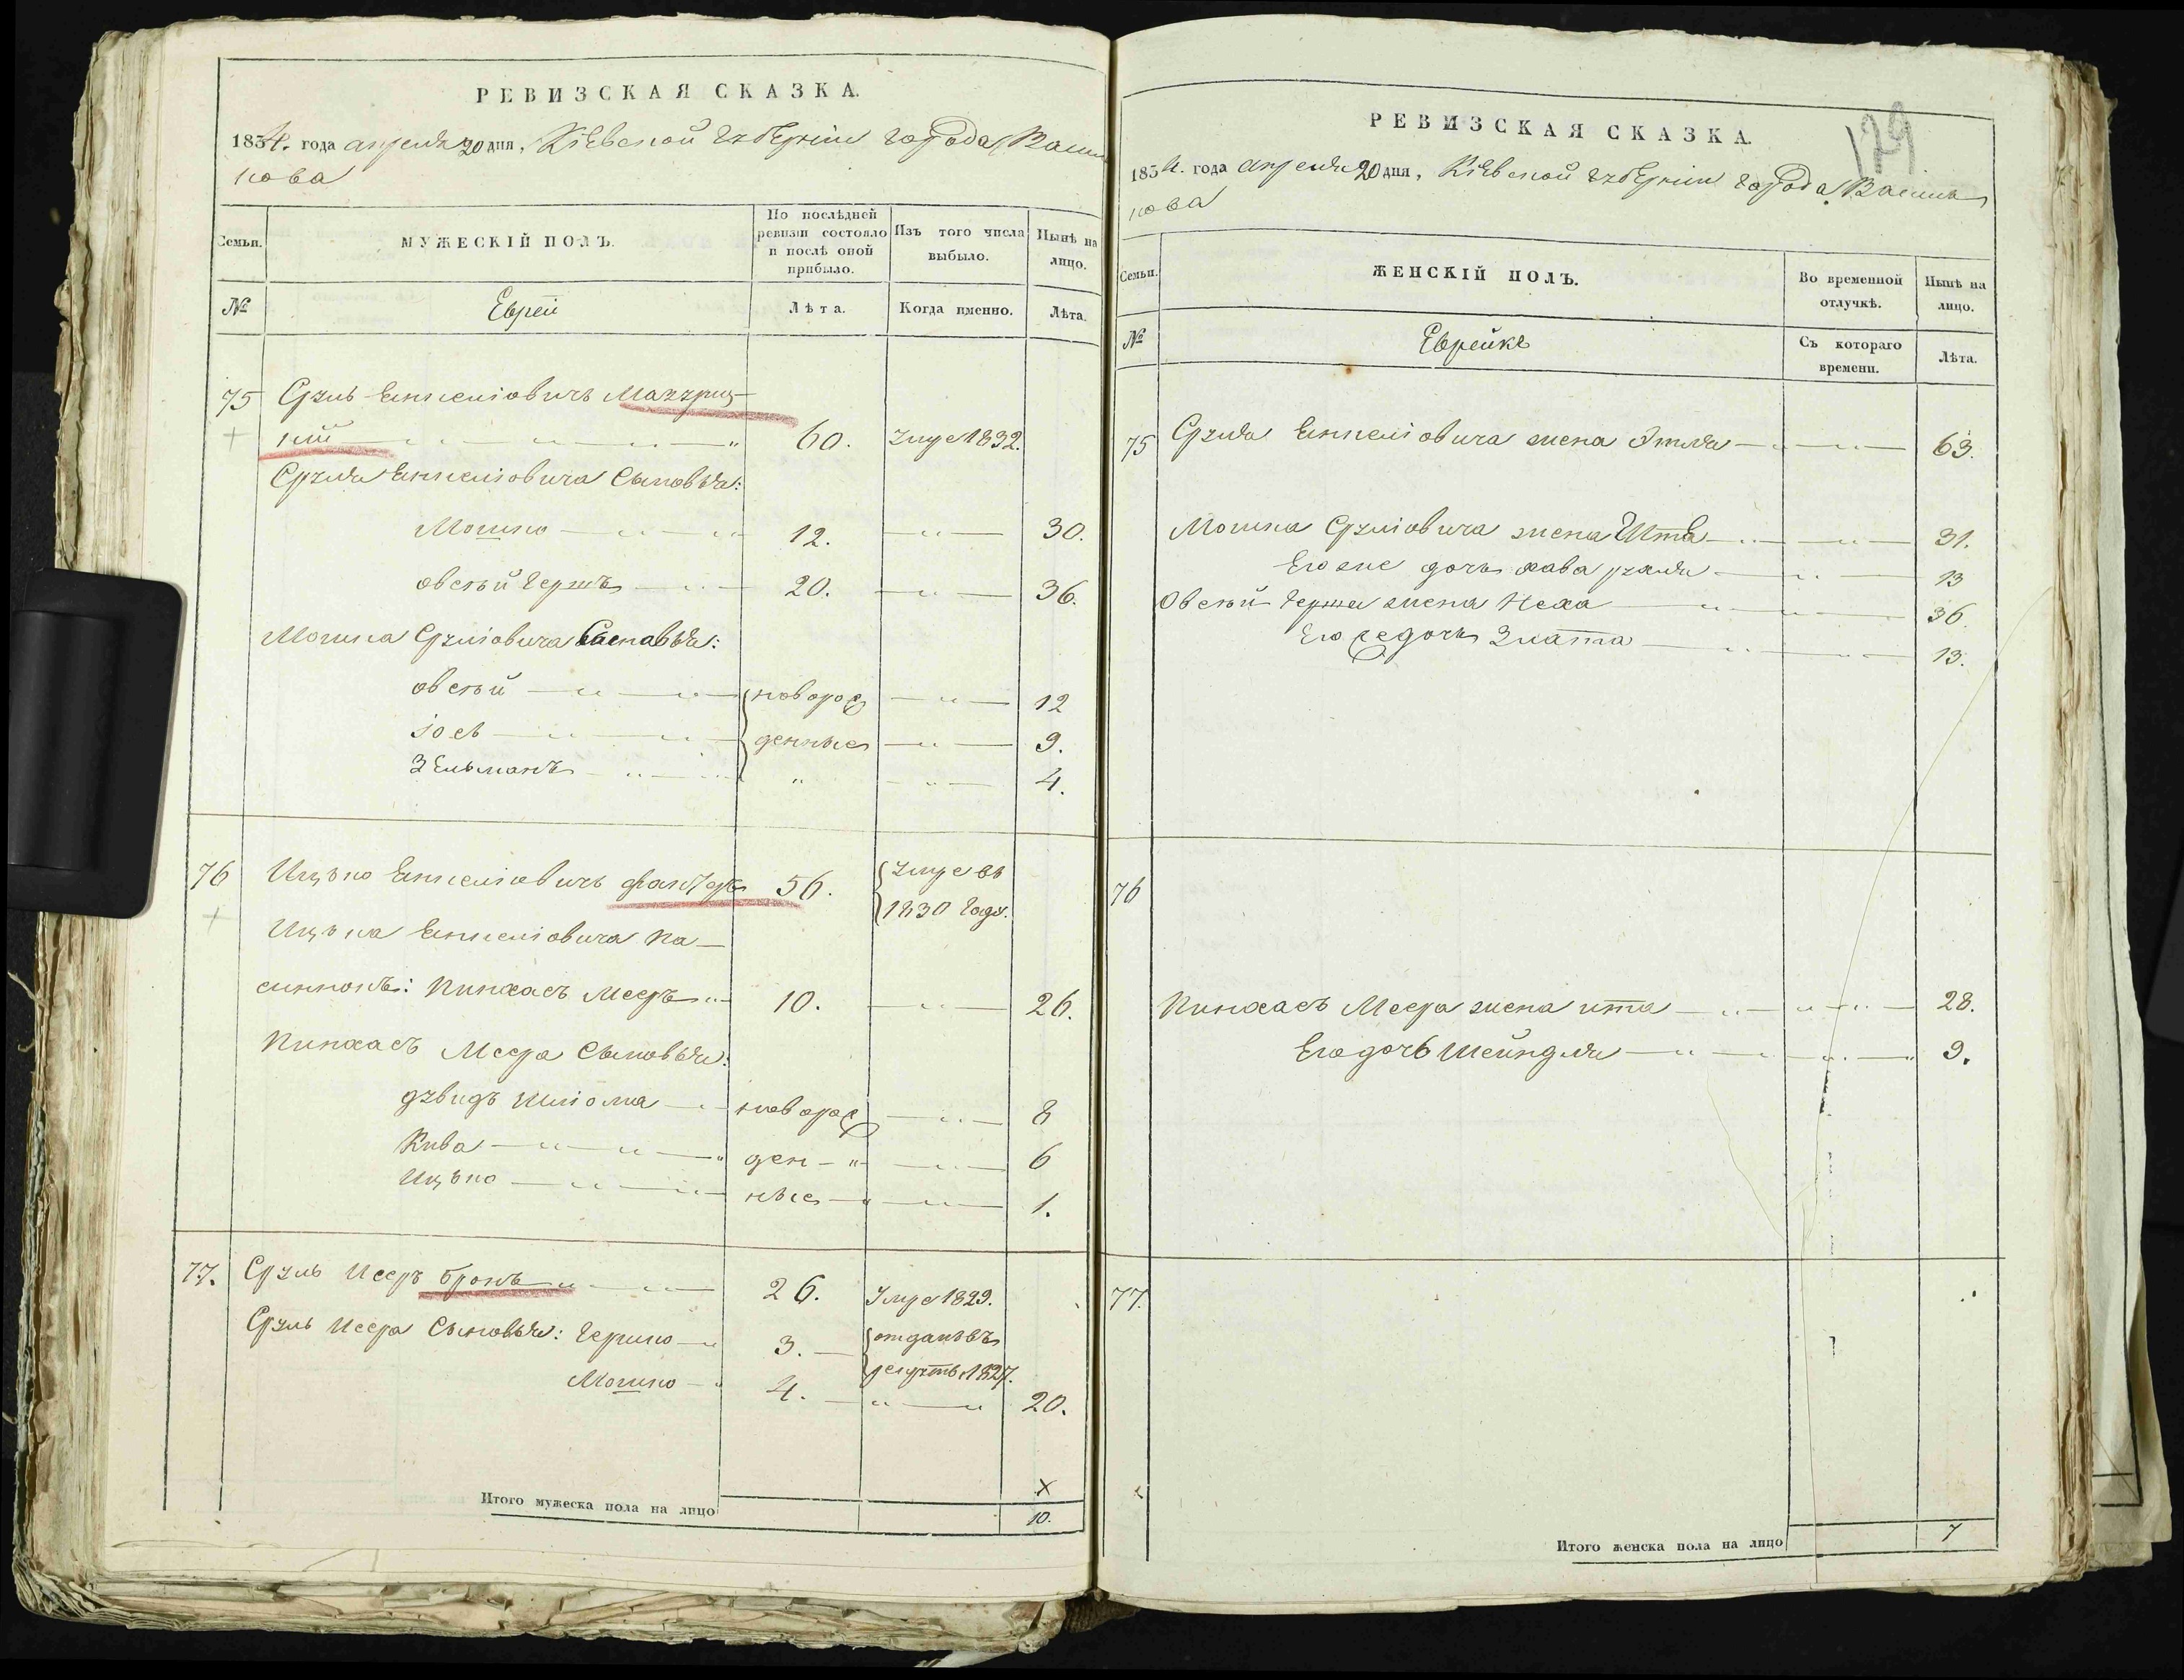 РЕВИЗСКАЯ СКАЗКА.
1834. года апреля 20 дня, Кіевской губерніи города Василь
кова
Семьи.
МУЖЕСКІЙ ПОЛЪ.
По послѣдней
ревизіи состояло
и послѣ оной
прибыло.
Изъ того числа
выбыло.
Нынѣ на
лицо.
№
Евреи
Лѣта.
Когда именно.
Лѣта.
75 Сруль Енкеліовичъ
кій 60. умре 1832.
Сруля Енкеліовича Сыновья:
Мошко 12. 30.
овсѣй Гершъ 20. 36.
Мошка Сруліовича Сыновья:
овсѣй новорож 12
іосъ денные 9.
Зельманъ " 4.
76 Ицько Енкеліовичъ 56. умре въ
1830 Году.
Ицька Енкеліовича па
синокъ: Пинхасъ Мееръ 10. 26.
Пинхасъ Меера Сыновья:
дувидъ Шліома новорож 8
Кива ден 6
Ицько ные 1.
77. Сруль Исеръ бронъ 26. Умре 1829.
Сруль Исера Сыновья: Гершко 3. отданъ въ
рекруты 1827.
Мошко 4. 20.
x
Итого мужеска пола на лицо 10.
179
РЕВИЗСКАЯ СКАЗКА.
1834. года апреля 20 дня, Кіевской губерніи города Василь
кова
Семьи.
ЖЕНСКІЙ ПОЛЪ.
Во временной
отлучкѣ.
Нынѣ на
лицо.
№
Еврейкѣ
Съ котораго
времени.
Лѣта.
75 Сруля Енкеліовича жена Этля 63.
Мошка Сруліовича жена Ита 31.
Его же дочь хава рухля 13
Овсѣй Герша жена Неха 36.
Его же дочь Злата 13.
76
Пинхасъ Меера жена ита 28.
Его дочь Шейндля 9.
77.
Итого женска пола на лицо 7